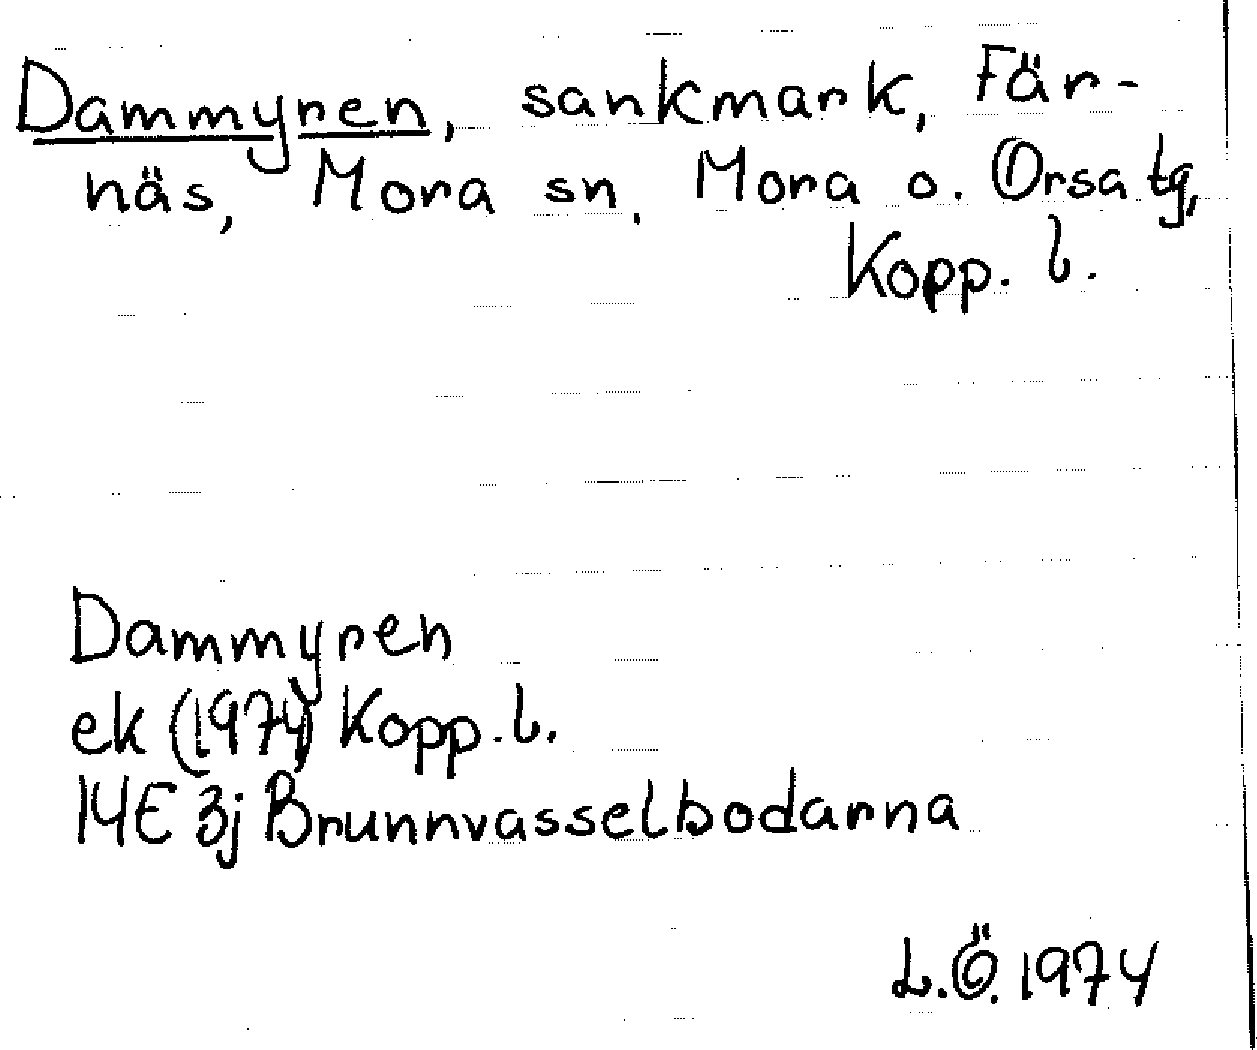 Dammyren, sankmark, Fär-
näs, Mora sn. Mora o. Orsa tg,
Kopp. l.
Dammyren
ek (1974) Kopp. l.
14E 3j Brunnvasselbodarna
L.Ö. 1974